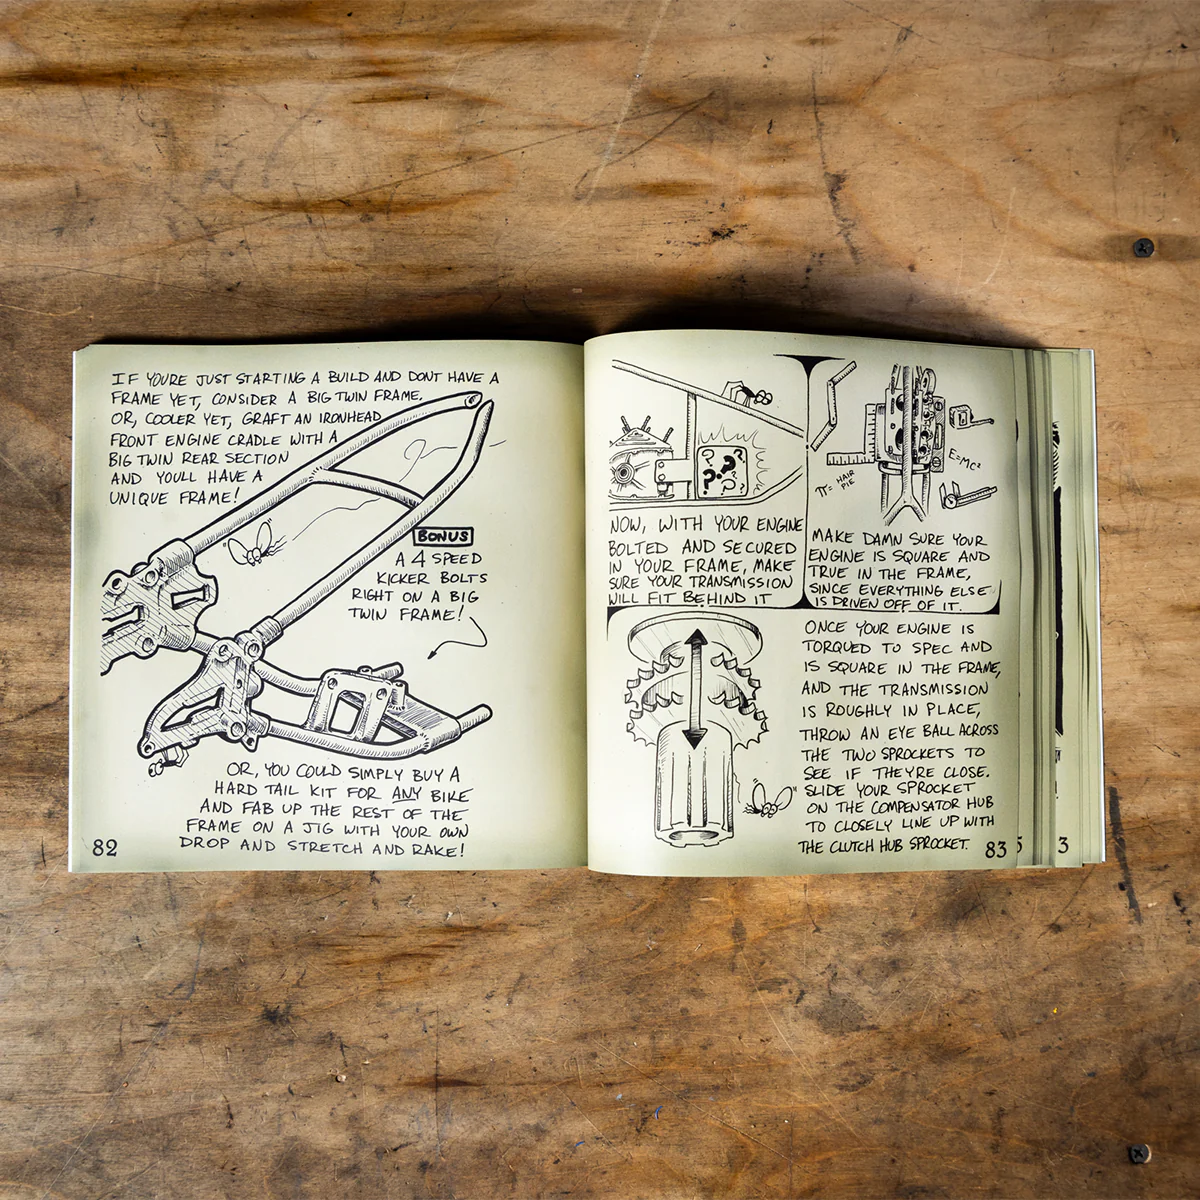 IF YOURE JUST STARTING A BUILD AND DONT HAVE A
FRAME YET, CONSIDER A BIG TWIN FRAME.
OR, COOLER YET, GRAFT AN IRONHEAD
FRONT ENGINE CRADLE WITH A
BIG TWIN REAR SECTION
AND YOULL HAVE A
UNIQUE FRAME!
BONUS
A 4 SPEED
KICKER BOLTS
RIGHT ON A BIG
TWIN FRAME!
OR, YOU COULD SIMPLY BUY A
HARD TAIL KIT FOR ANY BIKE
AND FAB UP THE REST OF THE
FRAME ON A JIG WITH YOUR OWN
DROP AND STRETCH AND RAKE!
82
???
NOW, WITH YOUR ENGINE
BOLTED AND SECURED
IN YOUR FRAME, MAKE
SURE YOUR TRANSMISSION
WILL FIT BEHIND IT
E=MC²
π= HAIR
PIE
MAKE DAMN SURE YOUR
ENGINE IS SQUARE AND
TRUE IN THE FRAME,
SINCE EVERYTHING ELSE
IS DRIVEN OFF OF IT.
ONCE YOUR ENGINE IS
TORQUED TO SPEC AND
IS SQUARE IN THE FRAME,
AND THE TRANSMISSION
IS ROUGHLY IN PLACE,
THROW AN EYE BALL ACROSS
THE TWO SPROCKETS TO
SEE IF THEYRE CLOSE.
SLIDE YOUR SPROCKET
ON THE COMPENSATOR HUB
TO CLOSELY LINE UP WITH
THE CLUTCH HUB SPROCKET.
83
5
3